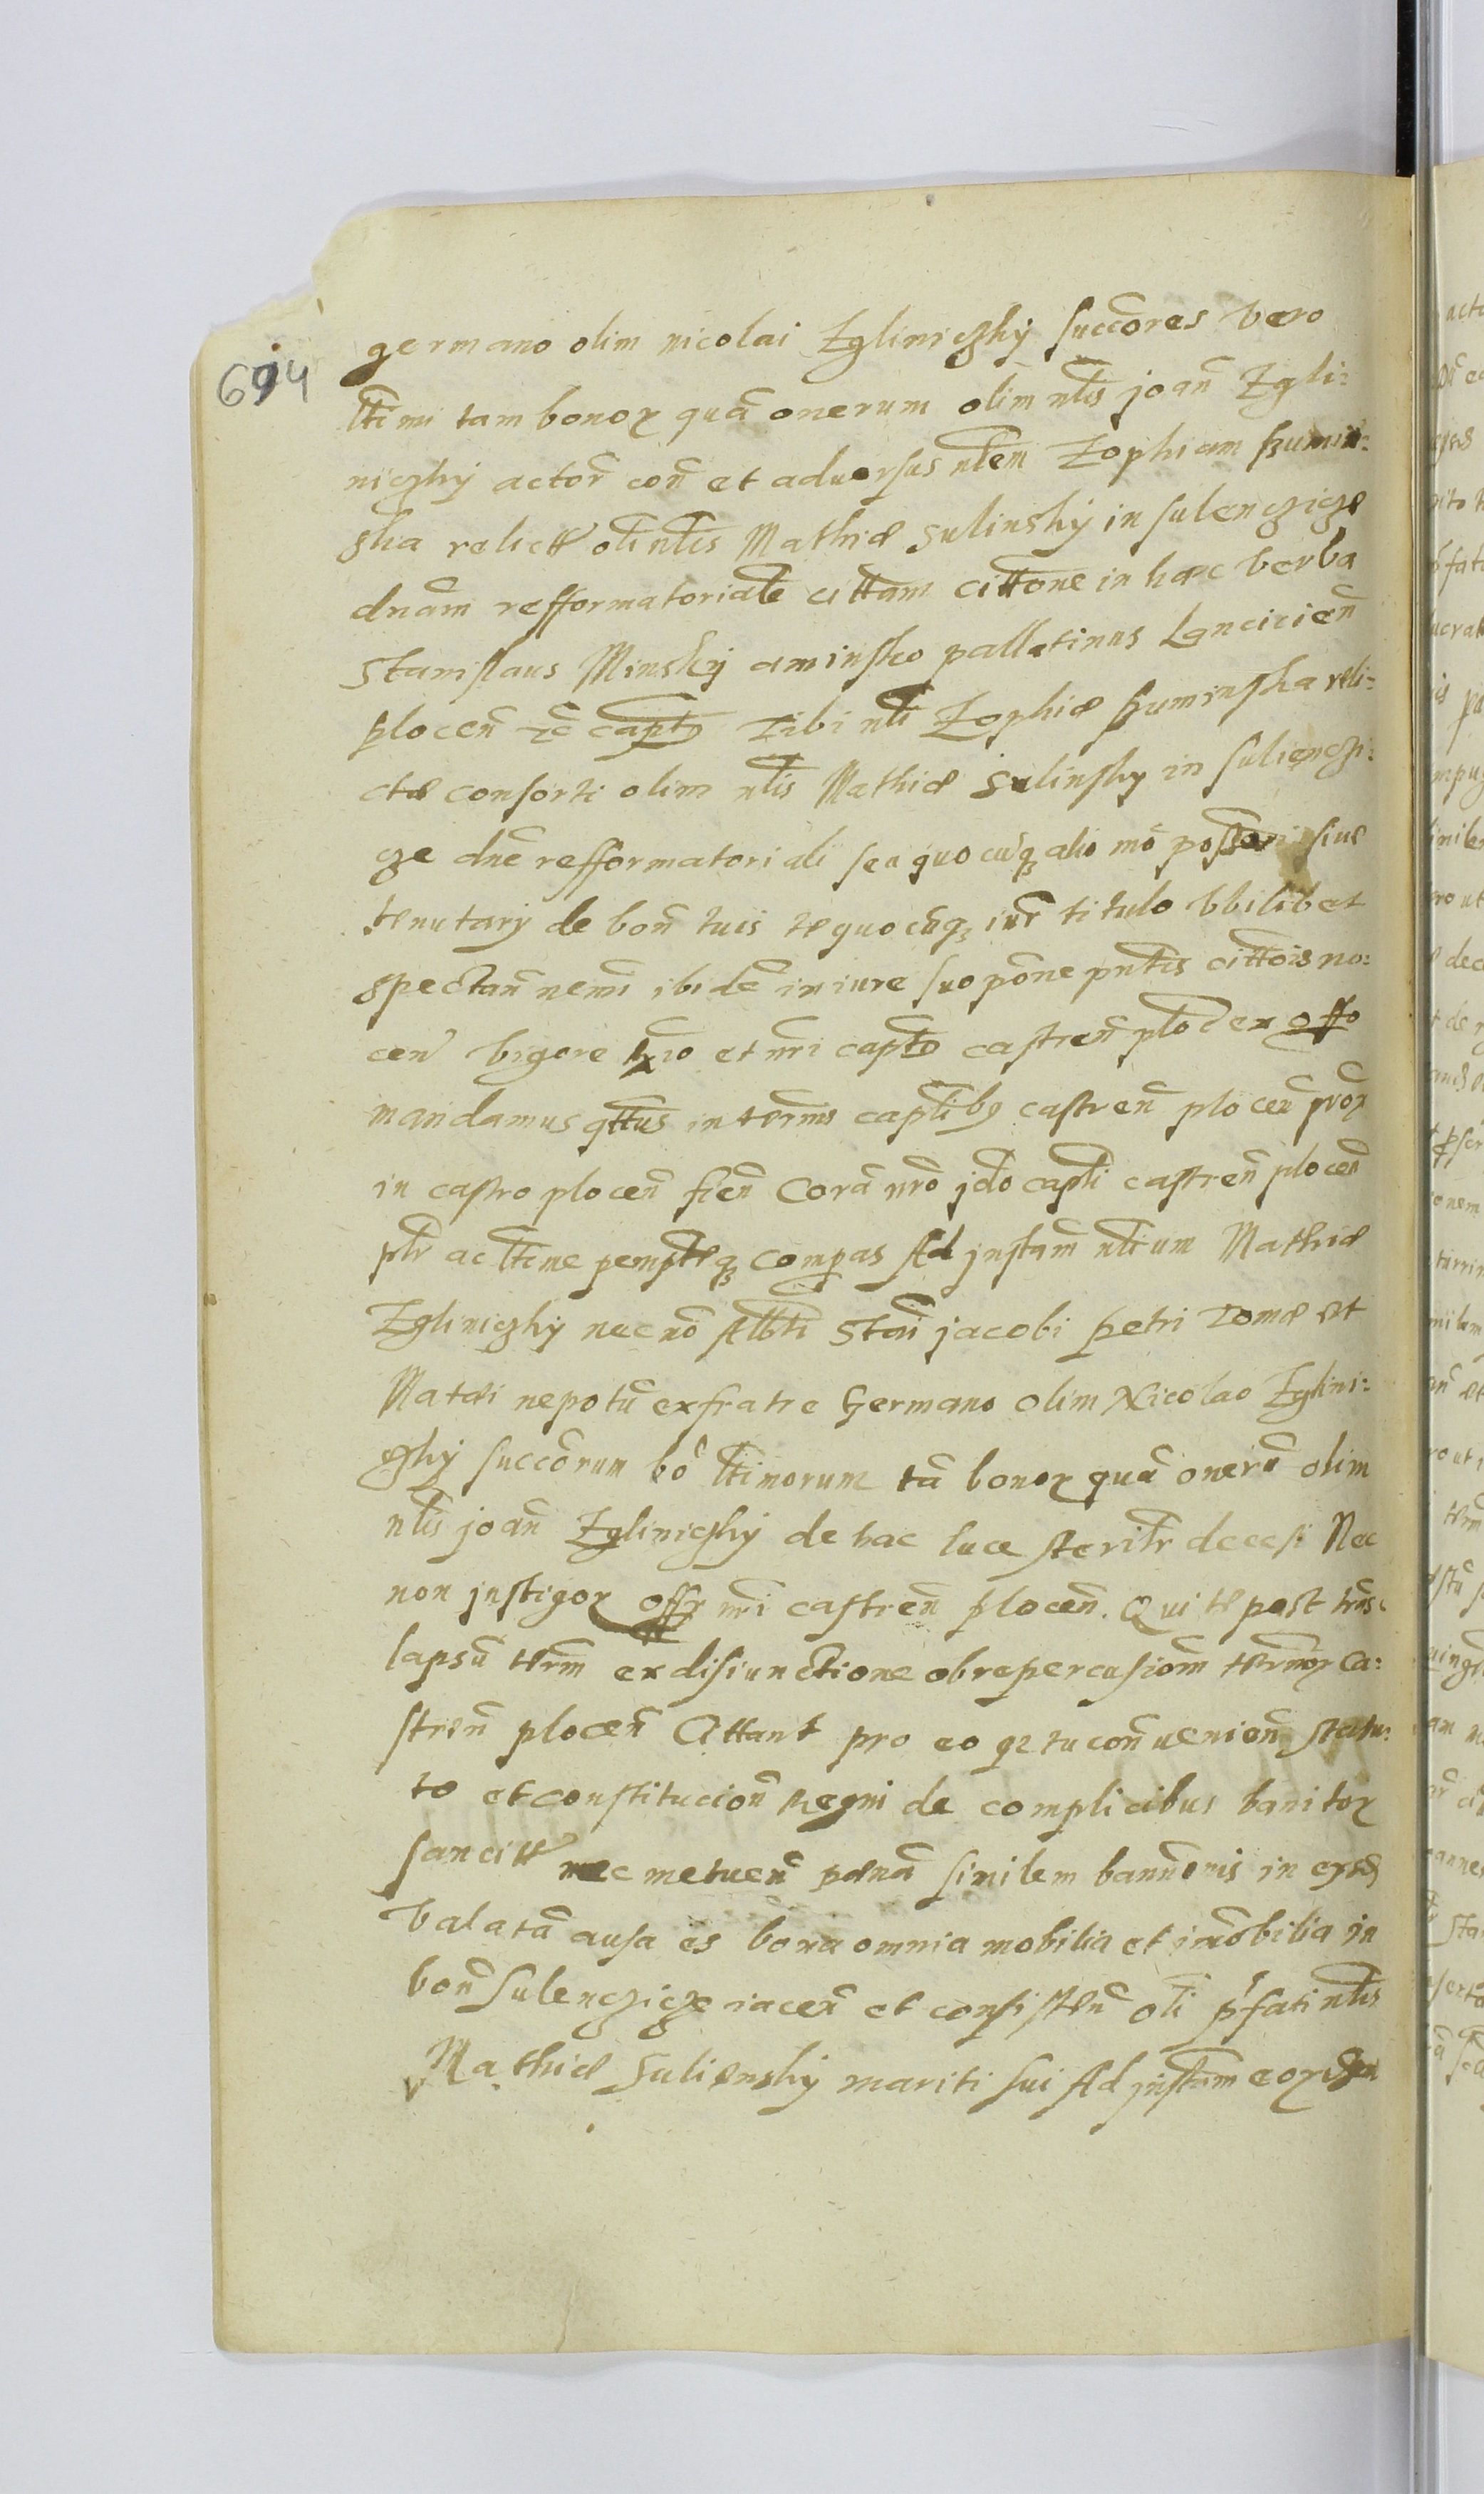 694
germano olim nicolai Zgliniczky succores vero
lttimi tam bonor quā onerum olim nlis joañ Zgli:
niczky actor con et aduersus nlem Zophiam kumin:
ska relictt oli nlis Mathiæ Sulinsky in sulenczicze
dnam refformatoriale cittam cittone in hæc verba
Stanislaus Minsky a minsko pallatinus Lancicień
ploceñ zc capts Tibi nli Zophiæ kuminska reli:
ctæ consorti olim nlis Mathiæ Sulinsky in sulienczi:
cze dne refformatoriali seu quocuq alio mō possori siue
tenutary de boñ tuis te quocūq iure titulo vbilibet
spectañ nemi ibidē in iure suo pone pntis cittois no:
ceñ vigore Rio et nri capts castreñ ploc ex offo
mandamus qttus in termis caplibs castreñ ploceñ pror
in castro ploceñ fieñ Corā nrō jdo capli castreñ ploceñ
plr ac lttime pempteq compas Ad jnstam nlium Mathiæ
Zgliniczky nec nō Albti Stai jacobi petri Tomæ et
Matæi nepotū ex fratre Germano olim Nicolao Zglini:
czky succorum vō lttimorum tā bonor quā onerū olim
nlis joañ Zgliniczky de hac luce sterilr decesi Nec
non jnstigor offy nri castreñ ploceñ. Qui te post trns
lapsū term ex disiunctione ob repercusiom termor ca:
streñ ploceñ Cittant pro eo qz tu con uenieñ statu:
to et constitucioñ Regni de complicibus banitor
sancitt nec metueñ pœnā similem bannonis in eosd
valatā ausa es bona omnia mobilia et imobilia in
boñ Sulenczicze iaceñ et consisteñ oli pfati nlis
Mathiæ Suliensky mariti sui Ad jnstam eor